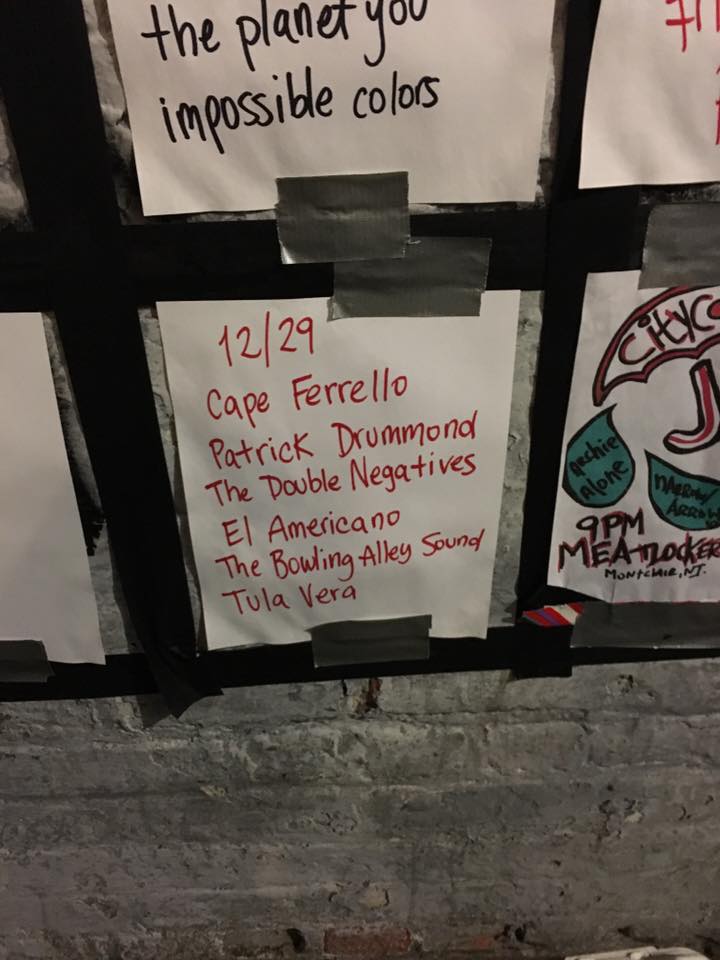 the planet you
impossible colors
12/29
Cape Ferrello
Patrick Drummond
The Double Negatives
El Americano
The Bowling Alley Sound
Tula Vera
Archie
Alone
9PM
MEATLOCKER
MONTCLAIR, NJ.